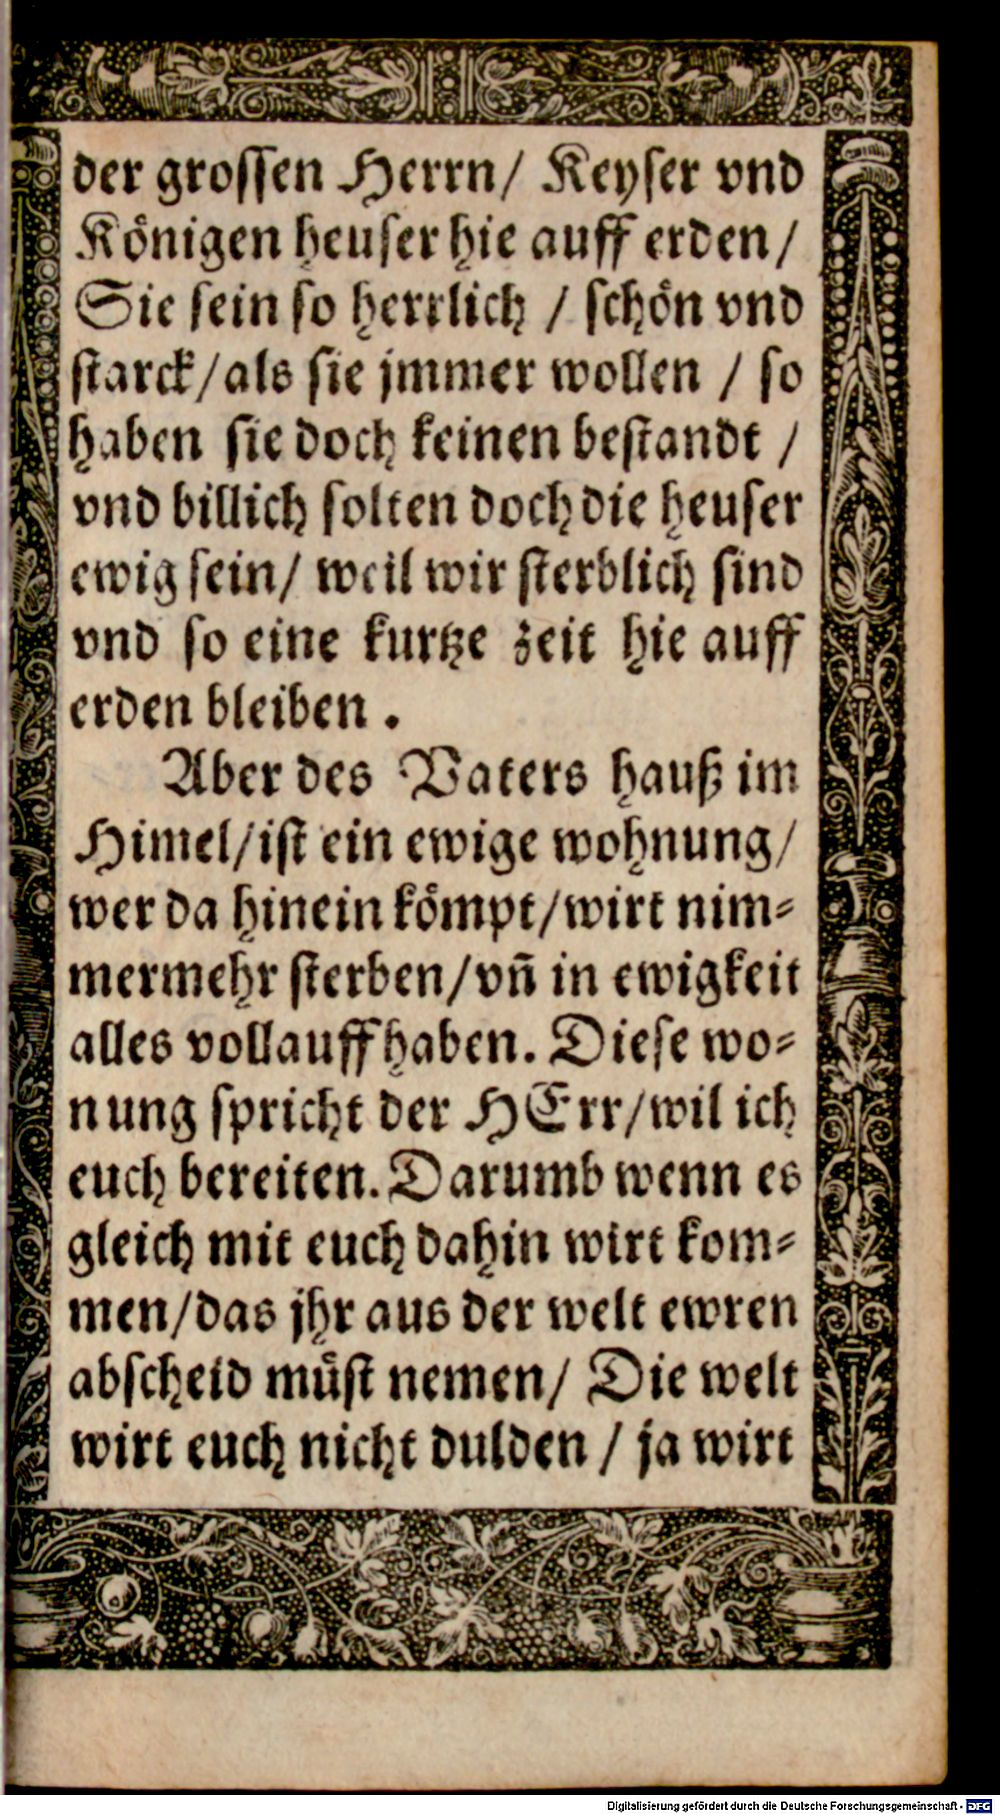 der groſſen Herrn/ Keyſer vnd
Königen heuſer hie auff erden/
Sie ſein ſo herrlich / ſchön vnd
ſtarck/als ſie jmmer wollen / ſo
haben ſie doch keinen beſtandt /
vnd billich ſolten doch die heuſer
ewig ſein/ weil wir ſterblich ſind
vnd ſo eine kurtze zeit hie auff
erden bleiben.
Aber des Vaters hauß im
Himel/iſt ein ewige wohnung/
wer da hinein kömpt/wirt nim⸗
mermehr ſterben/vn̄ in ewigkeit
alles vollauff haben. Dieſe wo⸗
nung ſpricht der HErr/wil ich
euch bereiten. Darumb wenn es
gleich mit euch dahin wirt kom⸗
men/das jhr aus der welt ewren
abſcheid müſt nemen/ Die welt
wirt euch nicht dulden / ja wirt
Digitalisierung gefördert durch die Deutsche Forschungsgemeinschaft - DFG